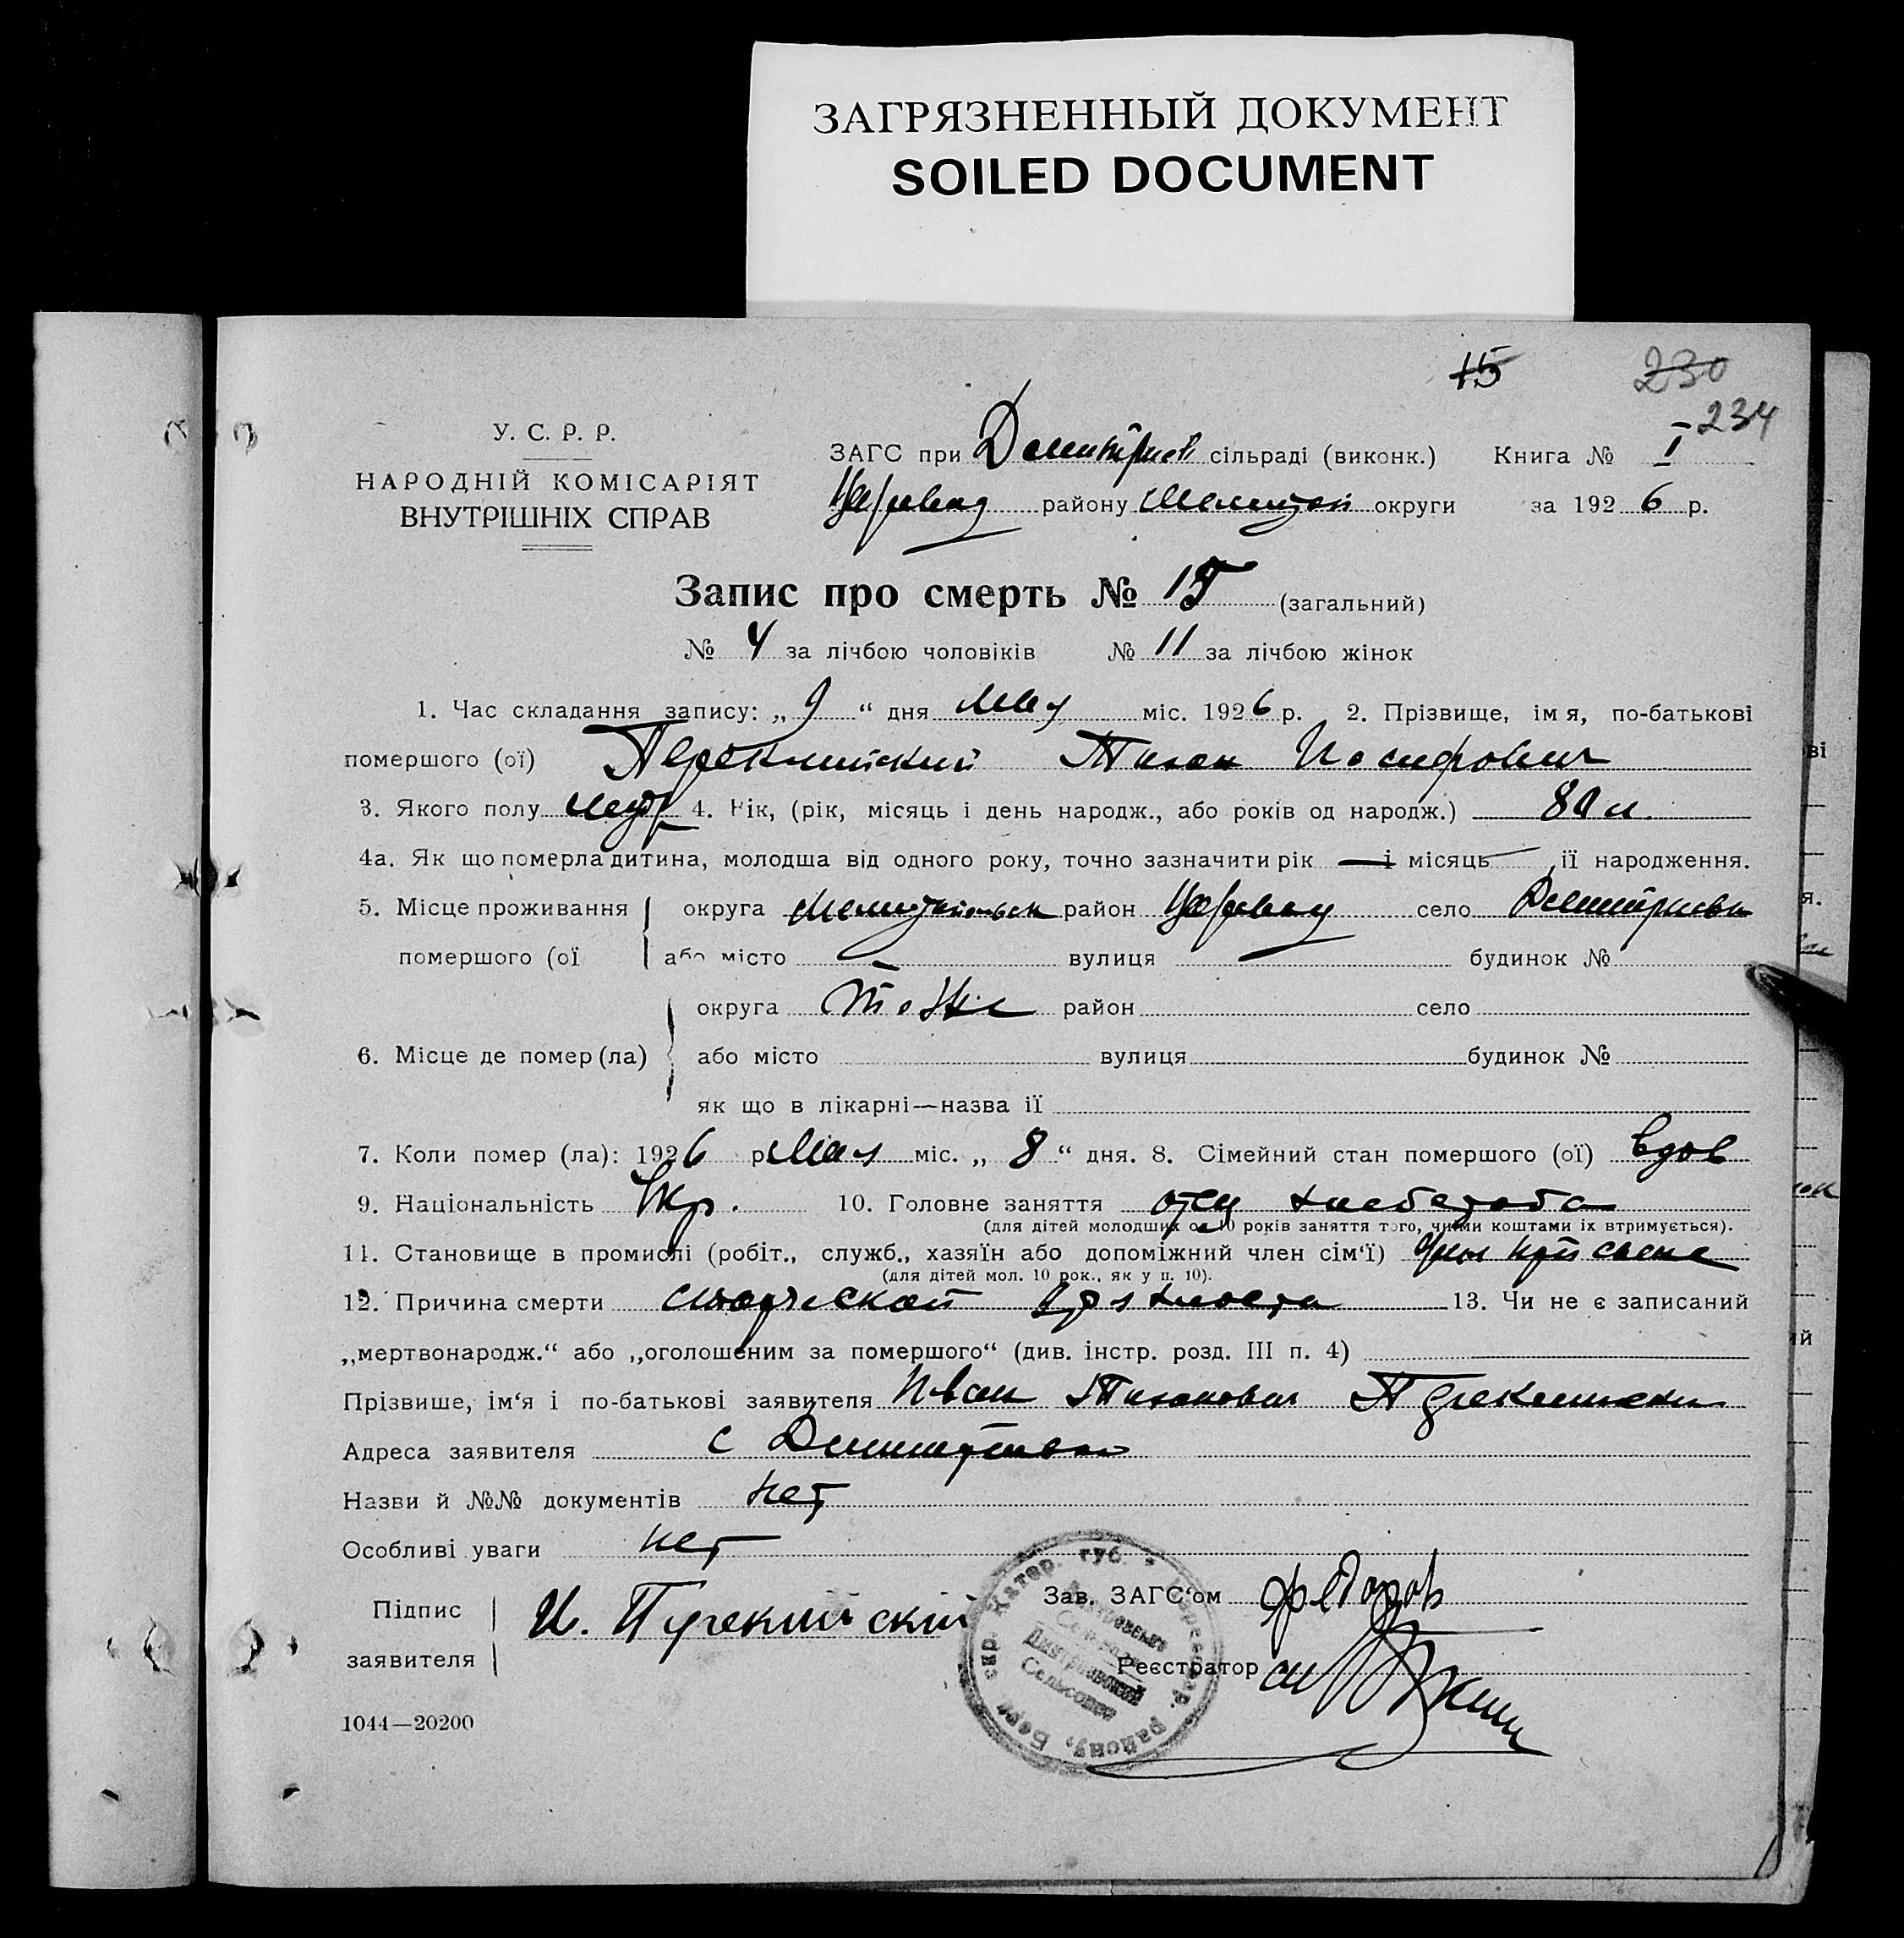 ЗАГРЯЗНЕННЫЙ ДОКУМЕНТ
SOILED DOCUMENT
15 230
234
У. С. Р. Р.
НАРОДНІЙ КОМІСАРІЯТ
ВНУТРІШНІХ СПРАВ
ЗАГС при сільраді (виконк.) Книга № I
району округи за 1926 р.
Запис про смерть № 15 (загальний)
№ 4 за лічбою чоловіків № 11 за лічбою жінок
1. Час складання запису: „ 9 “ дня Мая міс. 1926 р. 2. Прізвище, імя, по-батькові
помершого (ої) Тихон Иосифович
3. Якого полу муж 4. Рік, (рік, місяць і день народж., або років од народж.) 80 л.
4а. Як що померла дитина, молодша від одного року, точно зазначити рік — і місяць ії народження.
5. Місце проживання округа район село
помершого (ої або місто вулиця будинок №
округа тоже район село
6. Місце де помер(ла) або місто вулиця будинок №
як що в лікарні—назва ії
7. Коли помер (ла): 1926 р Мая міс. „ 8 “ дня. 8. Сімейний стан помершого (ої) вдов
9. Національність Укр. 10. Головне заняття отец хлебороба
(для дітей молодших од 10 років заняття того, чиїми коштами іх втримується).
11. Становище в промислі (робіт., служб., хазяїн або допоміжний член сім‘ї) член при семье
(для дітей мол. 10 рок., як у п. 10).
12. Причина смерти старческой дряхлости 13. Чи не є записаний
„мертвонародж.“ або „оголошеним за помершого“ (див. інстр. розд. III п. 4)
Прізвише, ім‘я і по-батькові заявителя Иван Тихонович
Адреса заявителя с
Назви й №№ документів нет
Особливі уваги нет
Підпис
заявителя И.
Зав. ЗАГС‘ом Федоров
Реєстратор
1044—20200